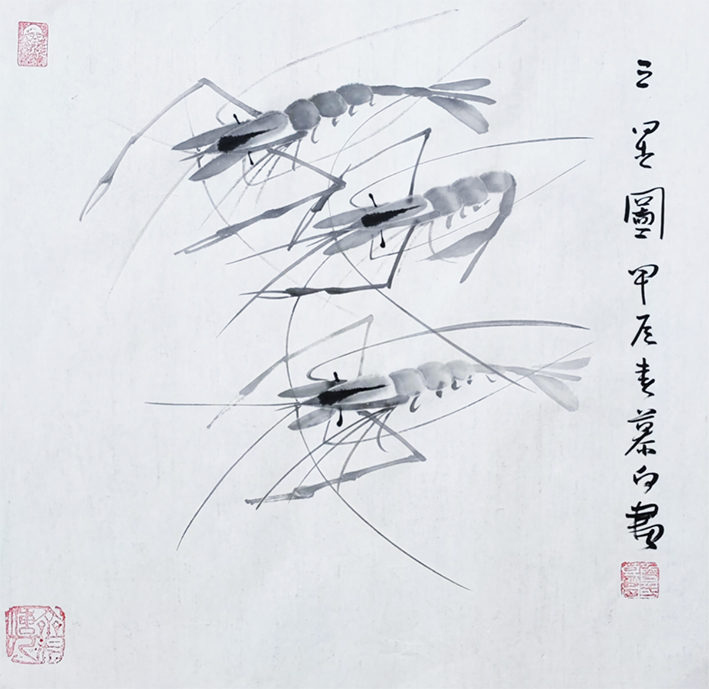 三星圖甲辰春慕白畫